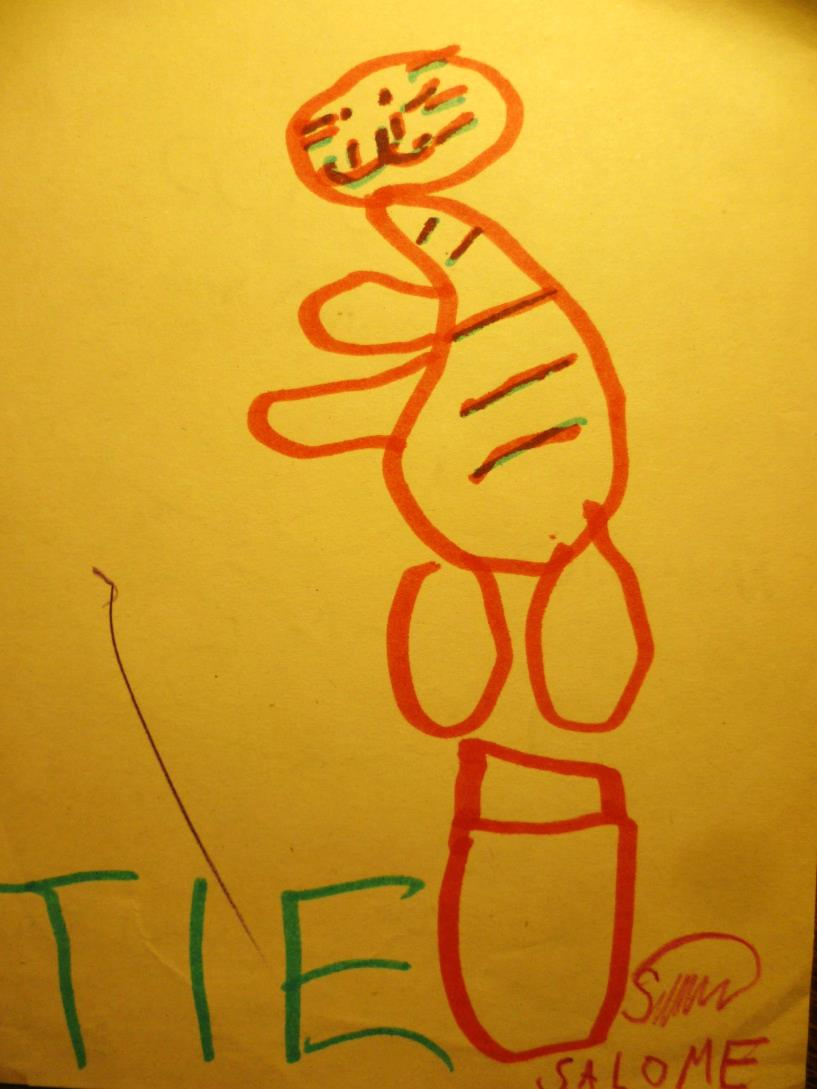 TIE
SALOME